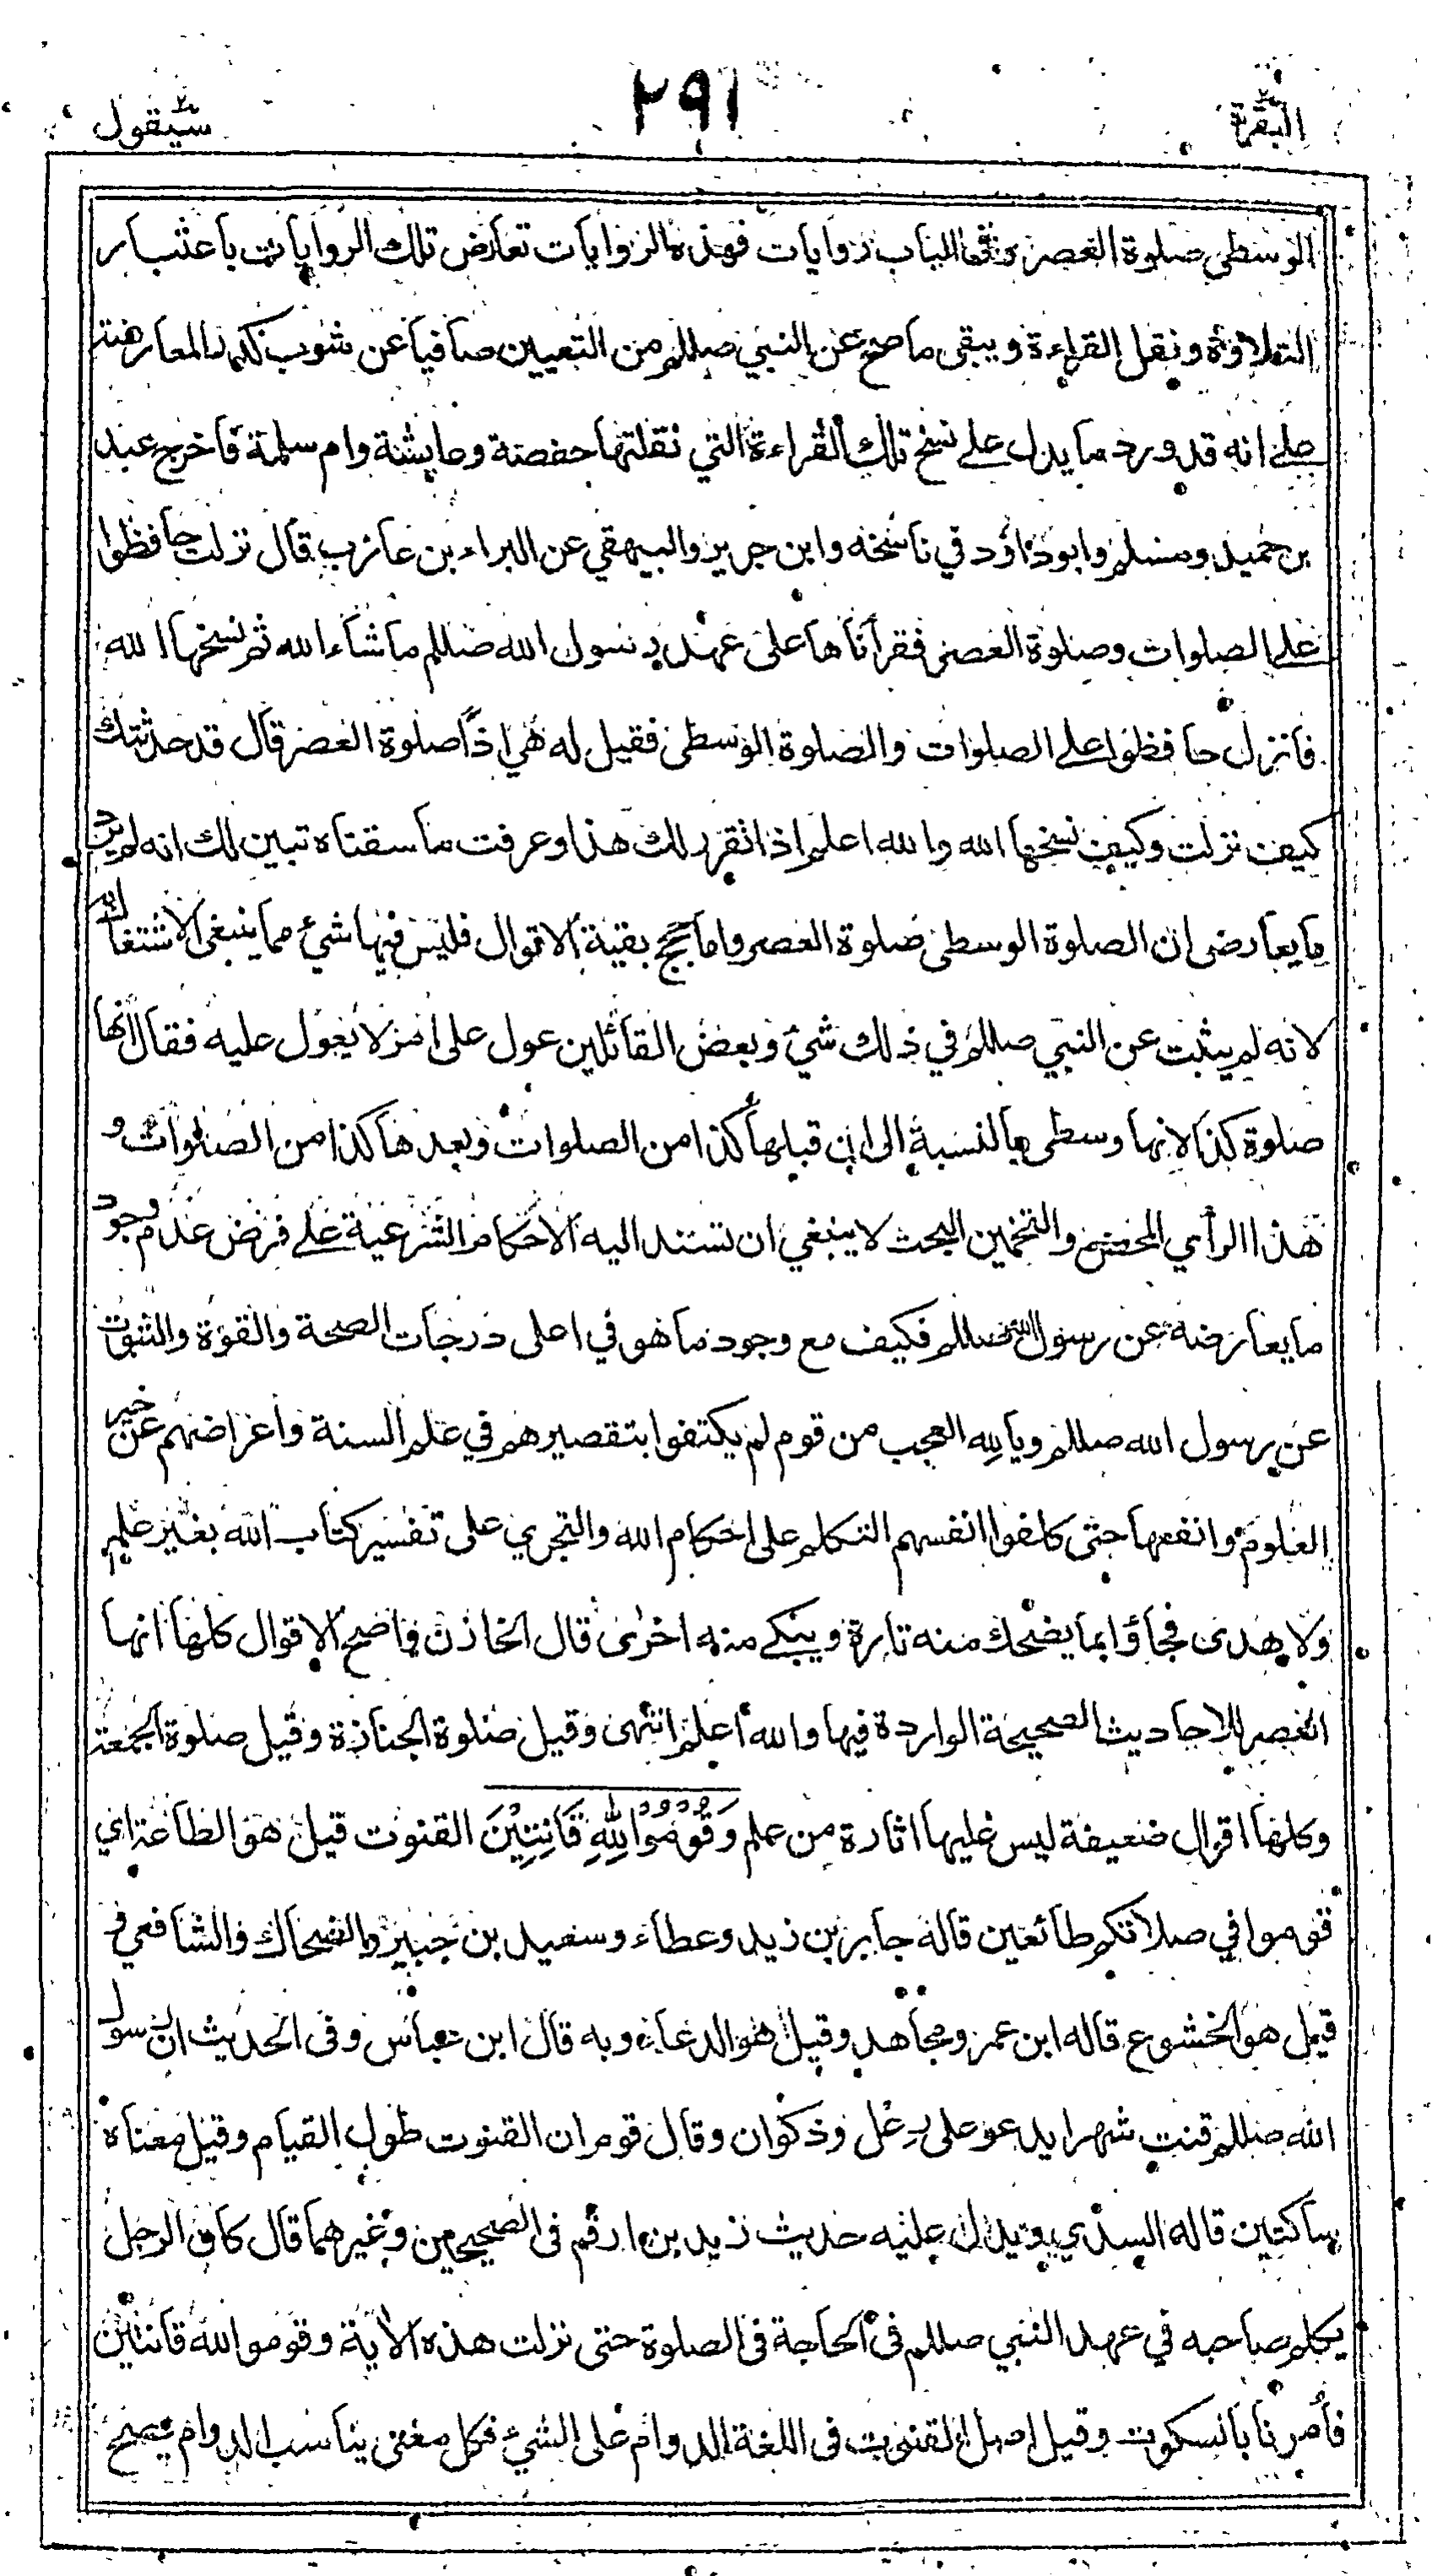 البقرة
٢٩١
سيقول
الوسطى صلوة العصر وفى الباب روايات فهذه الروايات تعارض تلك الروايات باعتبار
التلاوة ونقل القراءة ويبقى ما صح عن النبي صللم من التعيين صافيا عن شوب كدر المعارضة
على انه قد ورد ما يدل على نسخ تلك القراءة التي نقلتها حفصة وعايشة وام سلمة فاخرج عبد
بن حميد ومسلم وابو داؤد في ناسخه وابن جرير والبيهقي عن البراء بن عازب قال نزلت حافظوا
على الصلوات وصلوة العصر فقرأناها على عهد رسول الله صللم ما شاء الله ثم نسخها الله
فانزل حافظوا على الصلوات والصلوة الوسطى فقيل له هي اذاً صلوة العصر قال قد حدثتك
كيف نزلت وكيف نسخها الله والله اعلم اذا تقرر لك هذا وعرفت ما سقناه تبين لك انه لم يرد
ما يعارض ان الصلوة الوسطى صلوة العصر واما حجج بقية الاقوال فليس فيها شيء مما ينبغي الاشتغال به
لانه لم يثبت عن النبي صللم في ذلك شيء وبعض القائلين عول على امر لا يعول عليه فقال انها
صلوة كذا لانها وسطى بالنسبة الى ان قبلها كذا من الصلوات وبعدها كذا من الصلوات و
هذا الرأي المحض والتخمين البحت لا ينبغي ان تستند اليه الاحكام الشرعية على فرض عدم وجود
ما يعارضه عن رسول الله صللم فكيف مع وجود ما هو في اعلى درجات الصحة والقوة والثبوت
عن رسول الله صللم ويا لله العجب من قوم لم يكتفوا بتقصيرهم في علم السنة واعراضهم عن خير
العلوم وانفعها حتى كلفوا انفسهم التكلم على احكام الله والتجري على تفسير كتاب الله بغير علم
ولا هدى فجاؤا بما يضحك منه تارة ويبكي منه اخرى قال الخازن واصح الاقوال كلها انها
العصر للاحاديث الصحيحة الواردة فيها والله اعلم انتهى وقيل صلوة الجنازة وقيل صلوة الجمعة
وكلها اقوال ضعيفة ليس عليها اثارة من علم وَقُوْمُوْا لِلّٰهِ قَانِتِيْنَ القنوت قيل هو الطاعة اي
قوموا في صلاتكم طائعين قاله جابر بن زيد وعطاء وسعيد بن جبير والضحاك والشافعي و
قيل هو الخشوع قاله ابن عمر ومجاهد وقيل هو الدعاء وبه قال ابن عباس وفى الحديث ان رسول
الله صللم قنت شهرا يدعو على رِعل وذكوان وقال قوم ان القنوت طول القيام وقيل معناه
ساكتين قاله السدي ويدل عليه حديث زيد بن ارقم فى الصحيحين وغيرهما قال كان الرجل
يكلم صاحبه في عهد النبي صللم فى الحاجة فى الصلوة حتى نزلت هذه الاية وقوموا لله قانتين
فأمرنا بالسكوت وقيل اصل القنوت فى اللغة الدوام على الشيء فكل معنى يناسب الدوام يصح